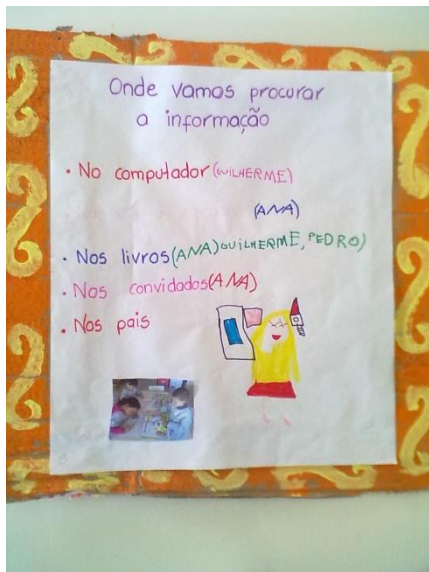 Onde vamos procurar
a informação
• No computador (GUILHERME)
(ANA)
• Nos livros (ANA) GUILHERME, PEDRO)
• Nos convidados (ANA)
• Nos pais